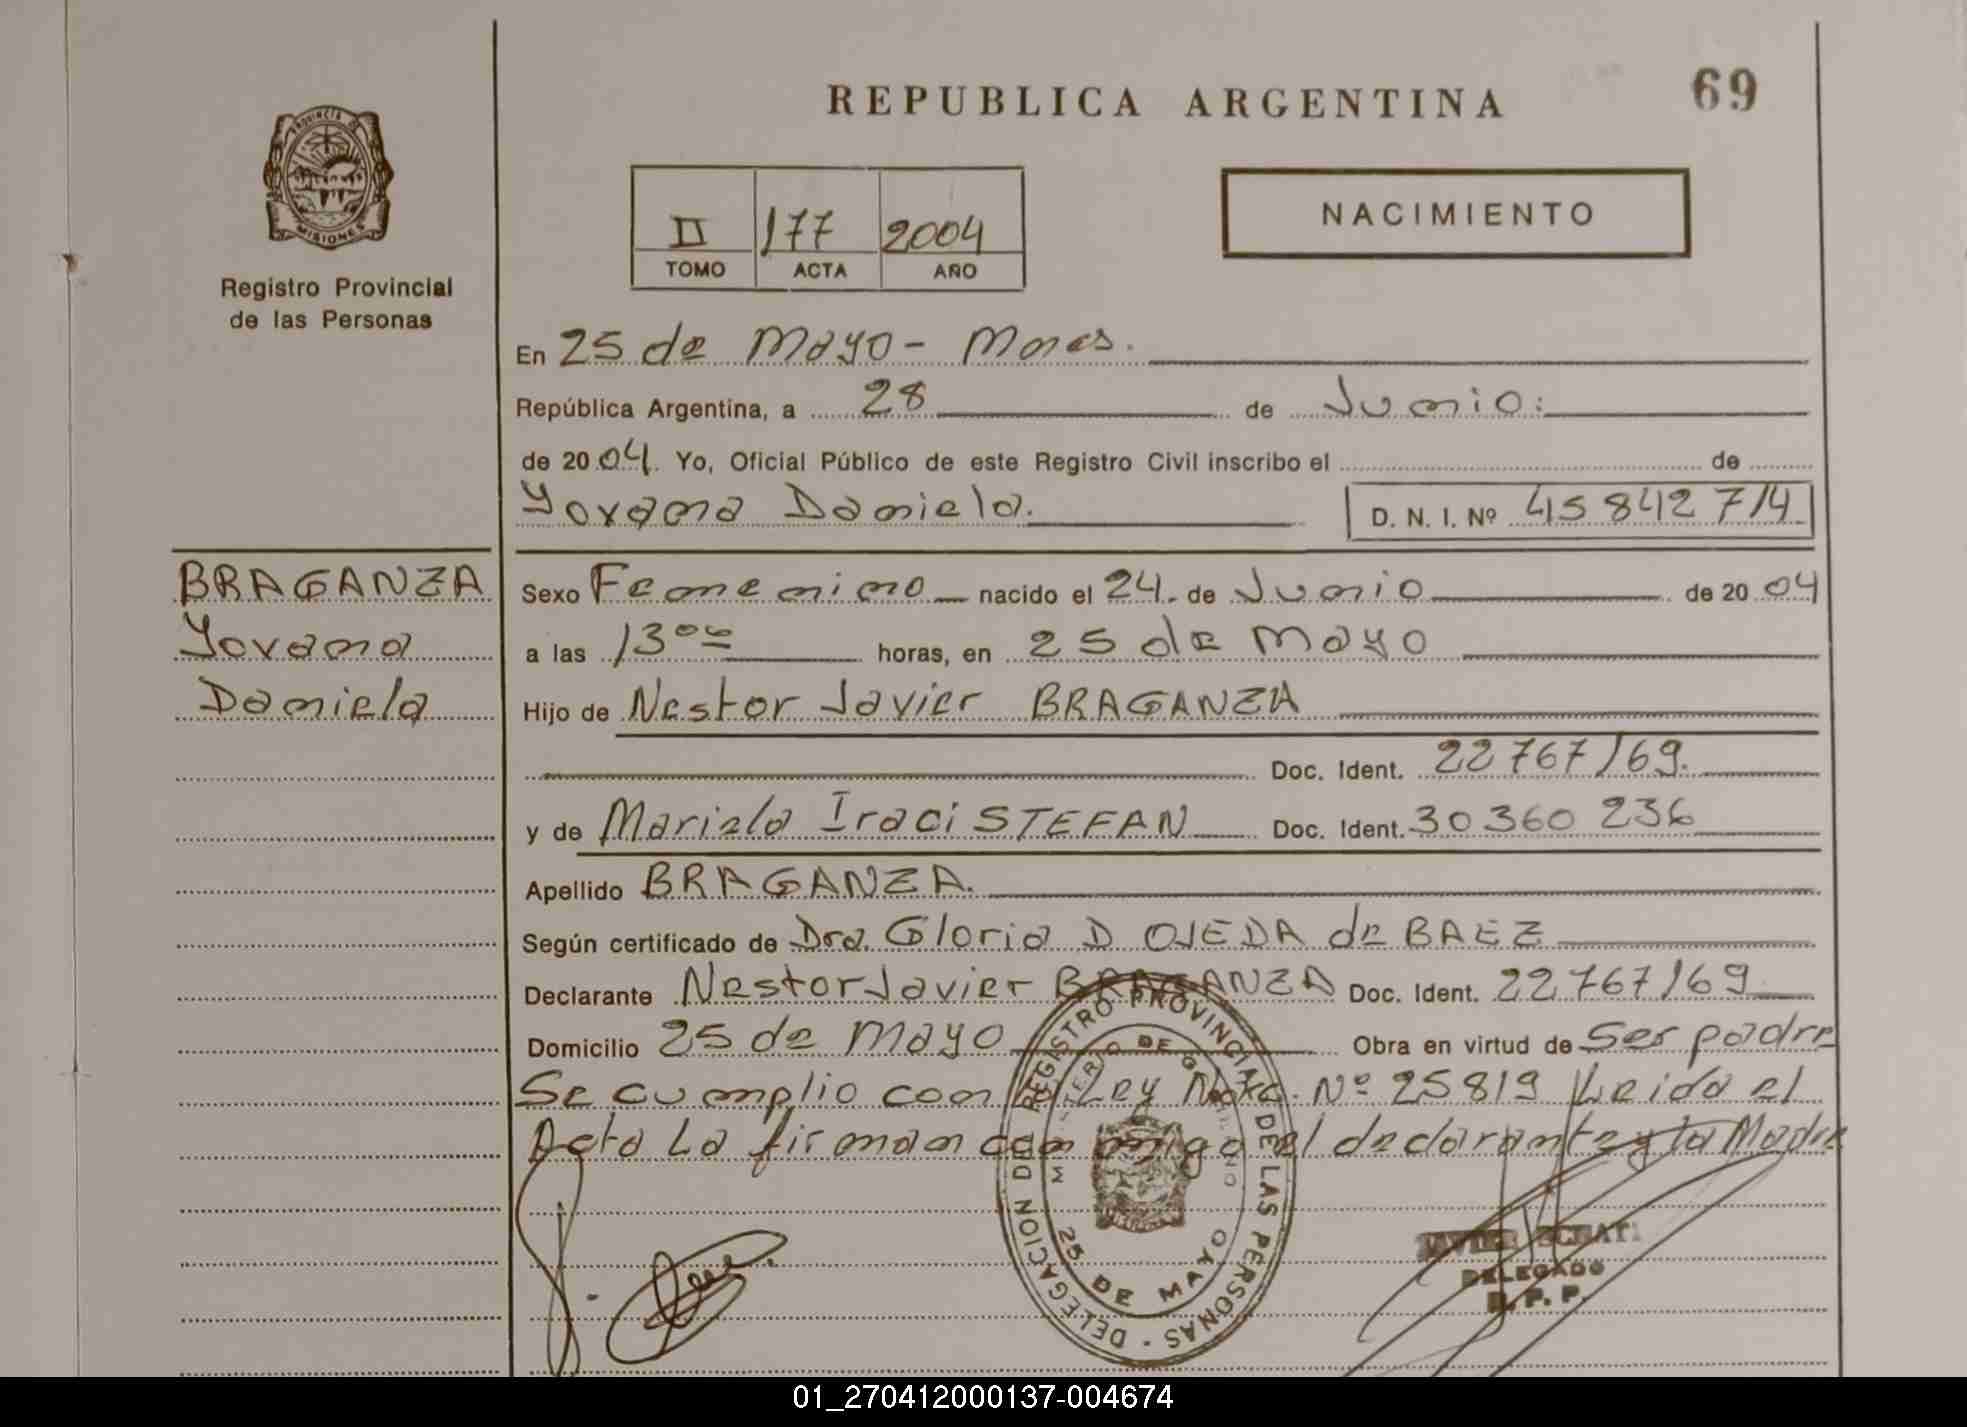 REPUBLICA ARGENTINA
69
PROVINCIA DE
MISIONES
Registro Provincial
de las Personas
II 177 2004
TOMO ACTA AÑO
NACIMIENTO
En 25 de Mayo - Mnes.
República Argentina, a 28 de Junio.
de 2004. Yo, Oficial Público de este Registro Civil inscribo el de
Yovana Daniela. D. N. I. Nº 45 842 714
BRAGANZA
Yovana
Daniela
Sexo Femenino nacido el 24. de Junio de 2004
a las 13 00 horas, en 25 de Mayo
Hijo de Nestor Javier BRAGANZA
Doc. Ident. 22 767 169.
y de Mariela Iraci STEFAN Doc. Ident. 30 360 236
Apellido BRAGANZA.
Según certificado de Dra. Gloria D OJEDA de BAEZ
Declarante Nestor Javier BRAGANZA Doc. Ident. 22 767 169
Domicilio 25 de Mayo Obra en virtud de Ser padre
Se cumplio con la Ley Nac. Nº 25819 Leida el
Acta La firman conmigo el declarante y la Madre
DELEGACION DEL REGISTRO PROVINCIAL DE LAS PERSONAS -
25 DE MAYO
JAVIER
DELEGADO
R. P. P.
01_270412000137-004674